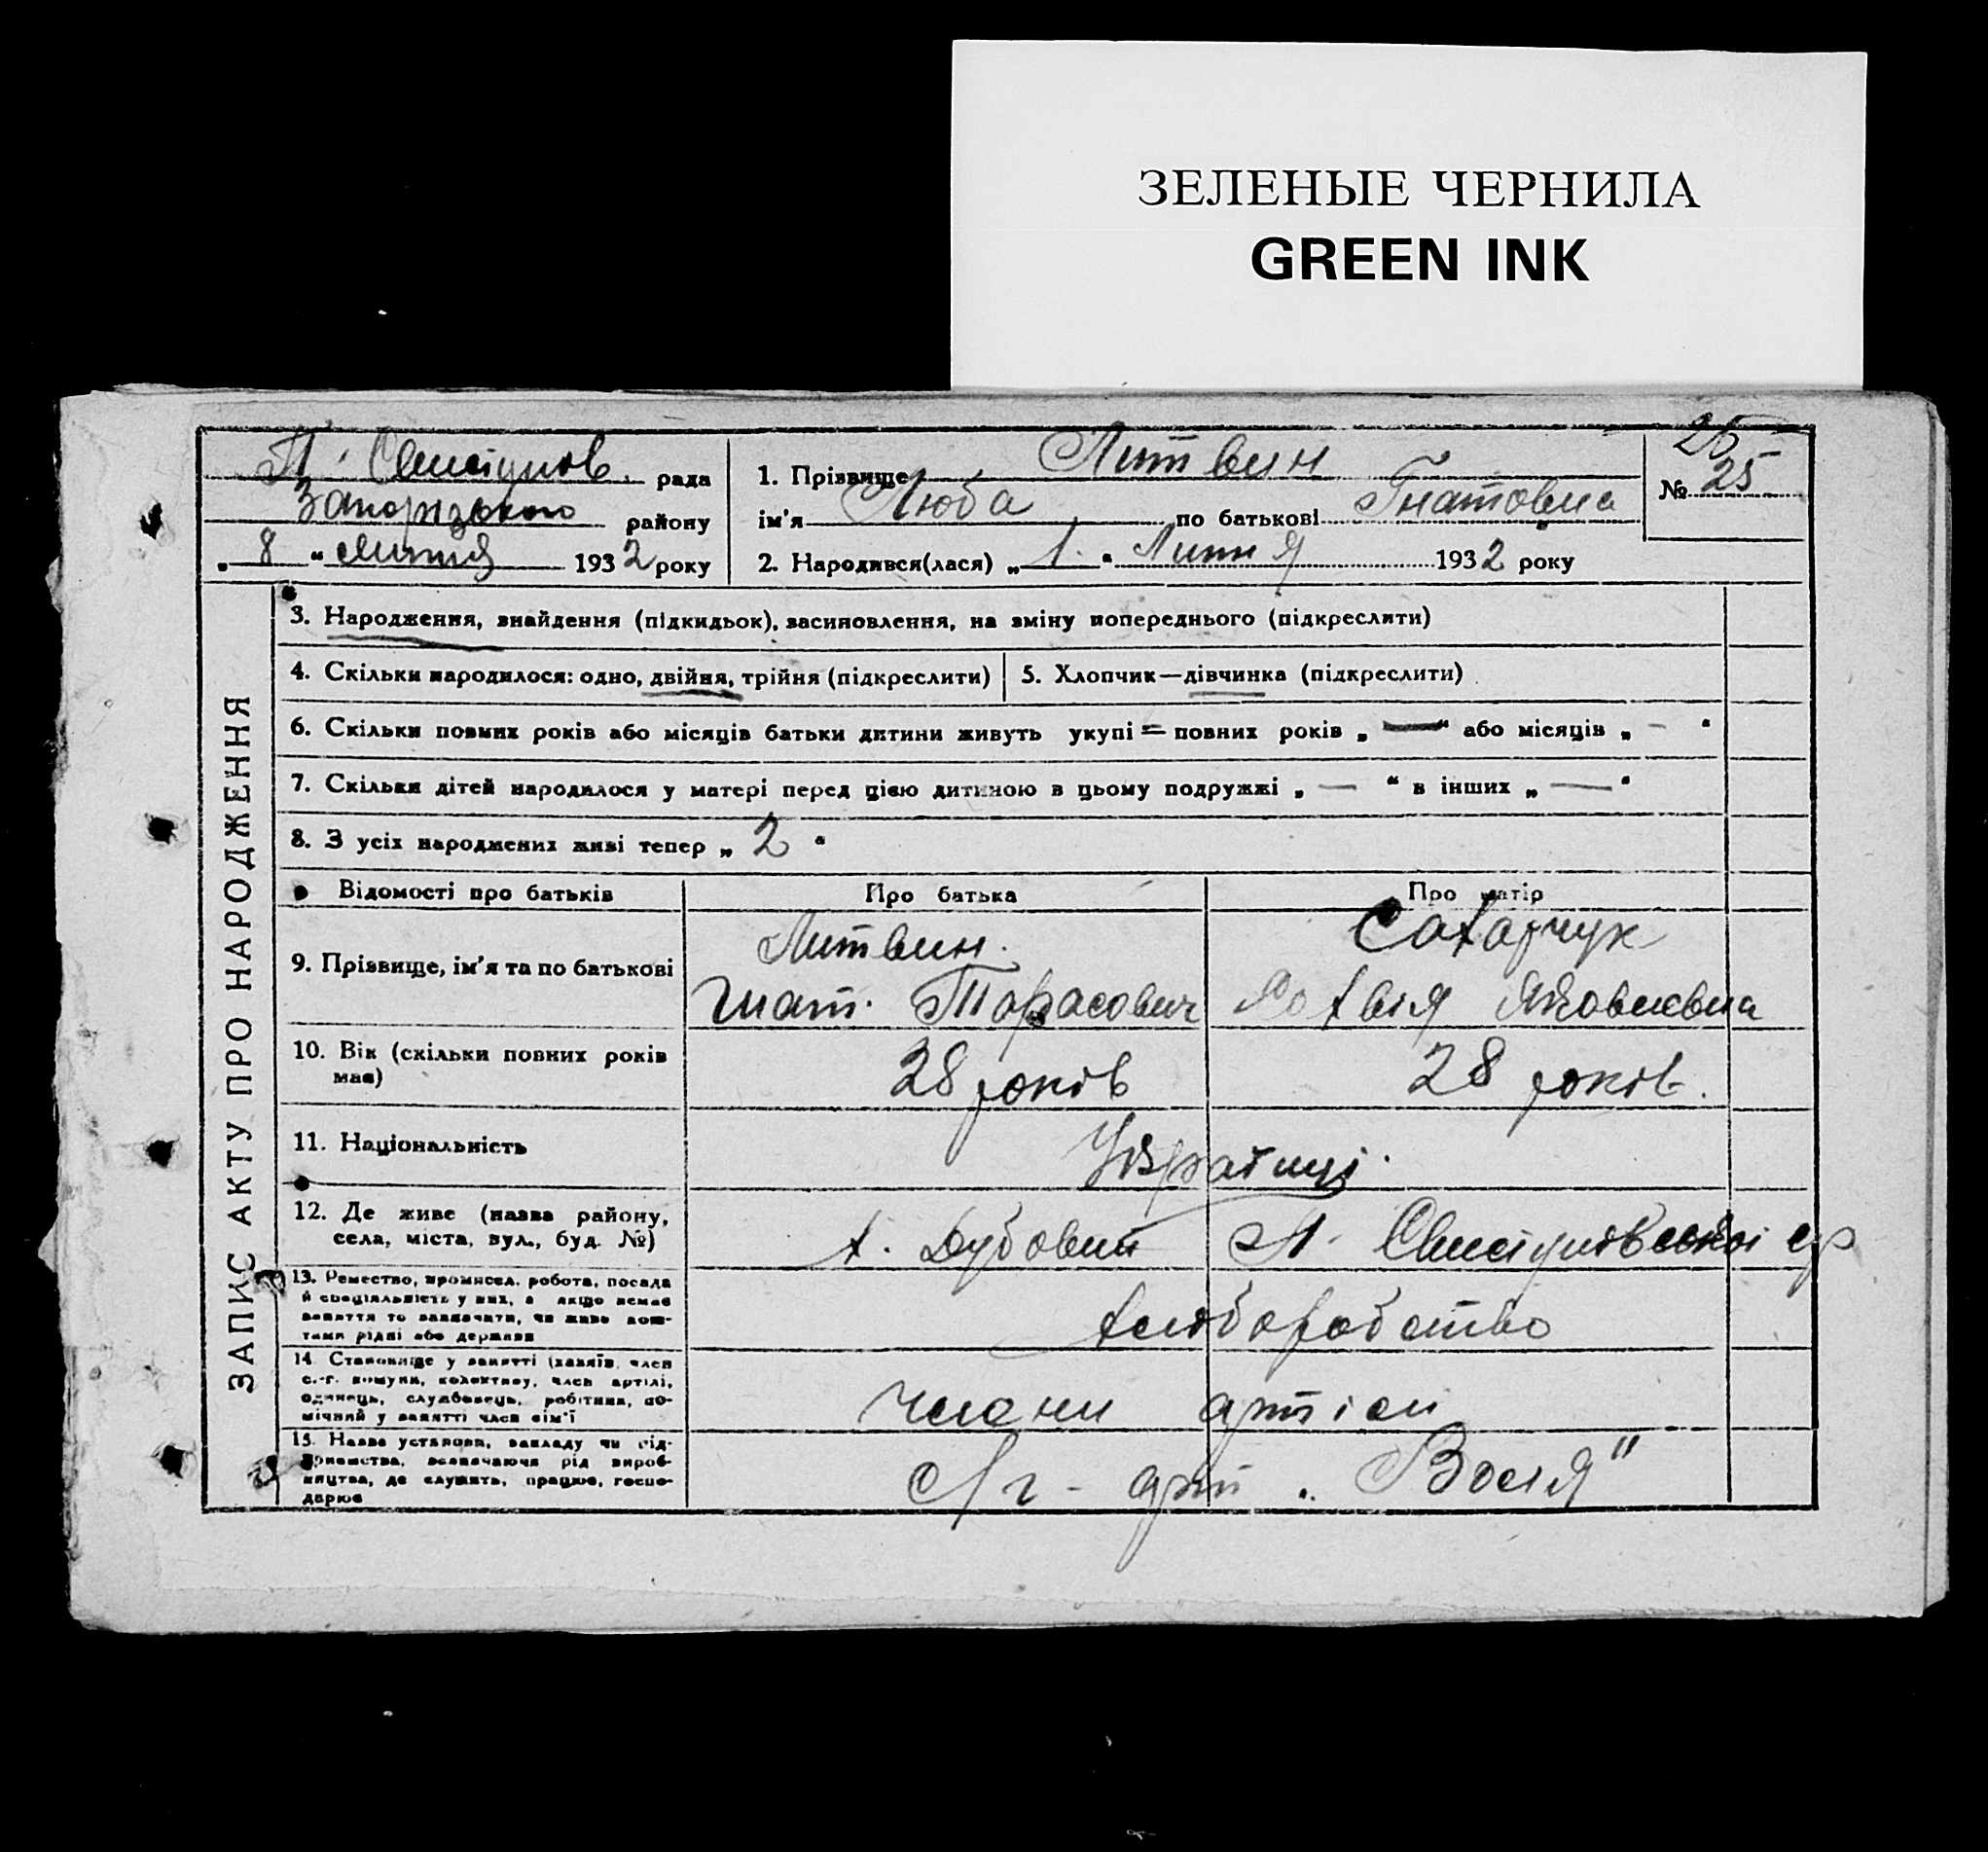 ЗЕЛЕНЫЕ ЧЕРНИЛА
GREEN INK
25
П. Свистунов. рада
Запорізького району
„ 8 “ Липня 1932 року
1. Прізвище Литвин
№ 25
ім'я Люба по батькові Гнатовна
2. Народився(лася) „ 1. “ Липня 1932 року
ЗАПИС АКТУ ПРО НАРОДЖЕННЯ
3. Народження, знайдення (підкидьок), засиновлення, на зміну попереднього (підкреслити)
4. Скільки народилося: одно, двійня, трійня (підкреслити)
5. Хлопчик—дівчинка (підкреслити)
6. Скільки повних років або місяців батьки дитини живуть укупі = повних років „ — “ або місяців „ — “
7. Скільки дітей народилося у матері перед цією дитиною в цьому подружжі „ — “ в інших „ — “
8. З усіх народжених живі тепер „ 2 “
Відомості про батьків Про батька Про матір
9. Прізвище, ім'я та по батькові
Литвин. Сахарчук
Гнат. Тарасович Яковлевна
10. Вік (скільки повних років має)
28 років 28 років.
11. Національність
Українці.
12. Де живе (назва району,
села, міста, вул., буд. №)
х. Дубовий П. Свистунівської с/р
13. Ремество, промисел, робота, посада
й спеціяльність у них, а якщо немає
заняття то зазначити, чи живе кош-
тами рідні або держави
хліборобство
14. Становище у занятті (хазяїн, член
с.-г. комуни, колективу, член артілі,
одинець, службовець, робітник, по-
мічний у занятті член сім'ї
члени артіли
15. Назва установи, закладу чи під-
приємства, зазначаючи рід вироб-
ництва, де служить, працює, госпо-
дарює
арт „Воля"